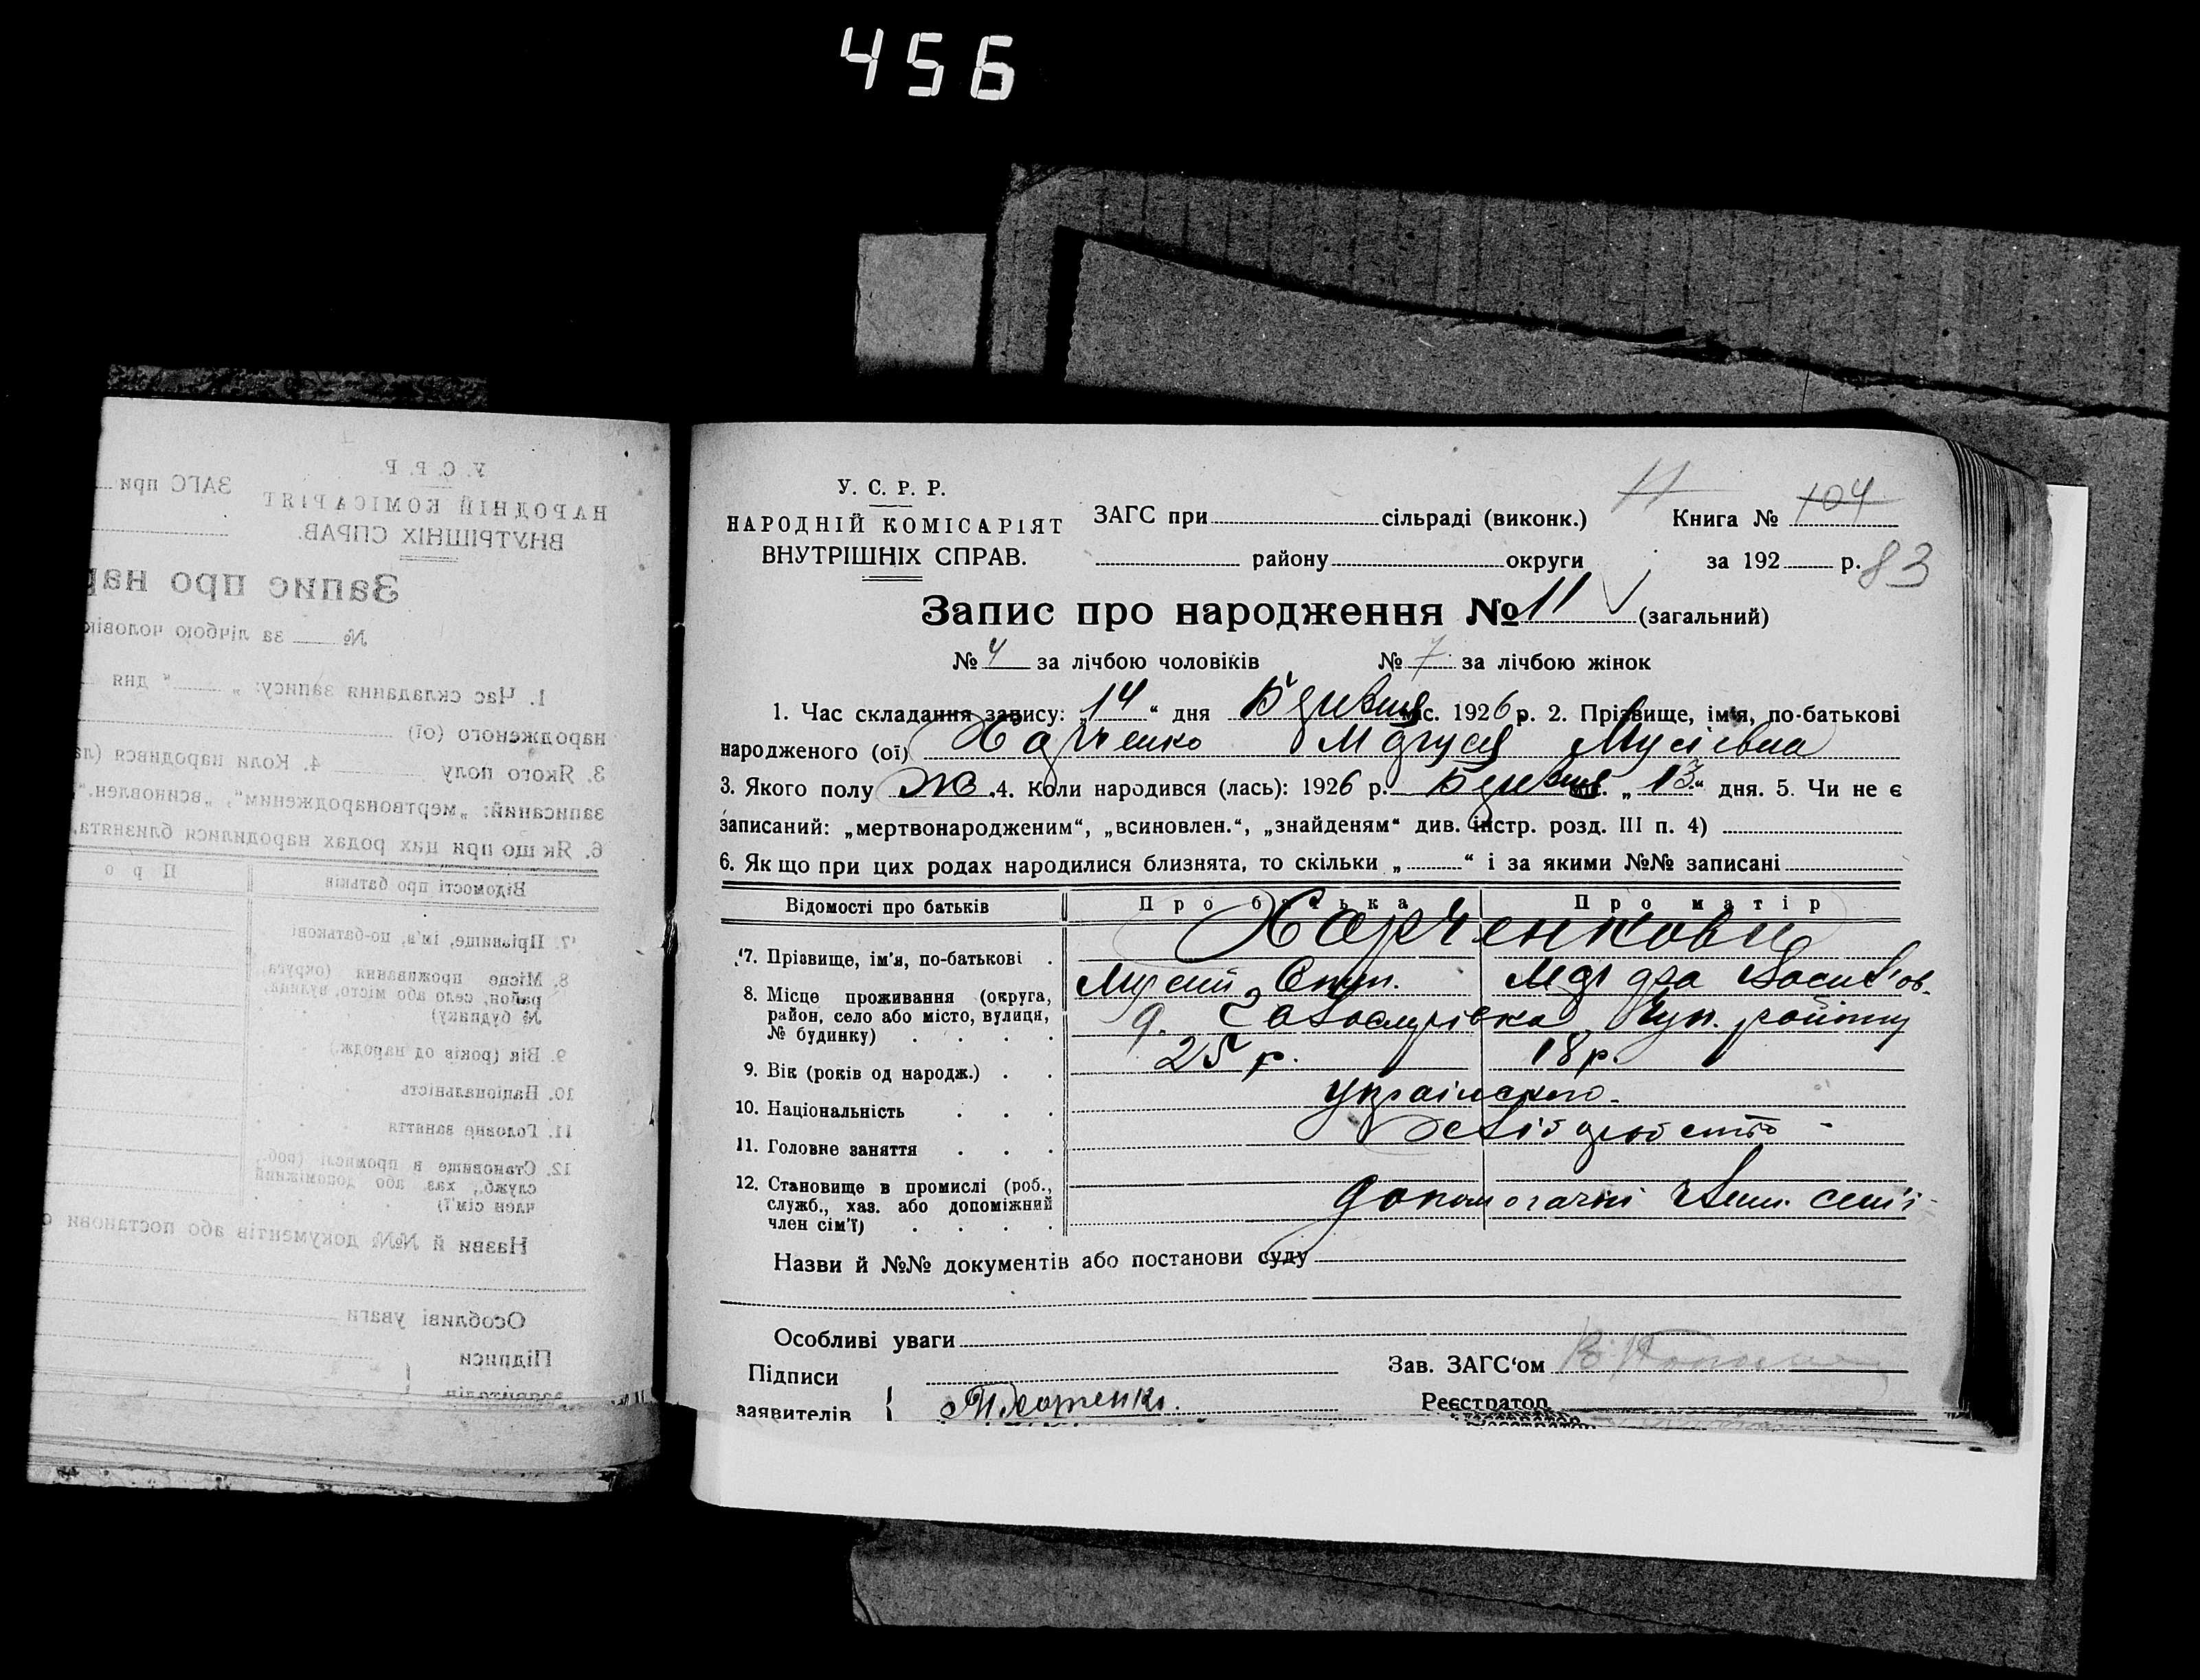 456
У. С. Р. Р.
НАРОДНІЙ КОМІСАРІЯТ
ВНУТРІШНІХ СПРАВ.
ЗАГС при сільраді (виконк.)
району округи
11
Книга № 104
за 192 р.
83
Запис про народження № 11 (загальний)
№ 4 за лічбою чоловіків № 7 за лічбою жінок
1. Час складання запису: „14“ дня Березня міс. 1926 р. 2. Прізвище, ім'я, по-батькові
народженого (ої) Харченко Маруся Мусіевна
3. Якого полу Ж 4. Коли народився (лась): 1926 р. Березня „13“ дня. 5. Чи не є
записаний: „мертвонародженим“, „всиновлен.“, „знайденям“ див. інстр. розд. III п. 4)
6. Якщо при цих родах народилися близнята, то скільки „ “ і за якими №№ записані
Відомості про батьків Про батька Про матір
Харченкови
7. Прізвище, ім'я, по-батькові Мусій Марфа
8. Місце проживання (округа,
район, село або місто, вулиця,
№ будинку) району
9. Вік (років од народж.) 25 р. 18 р.
10. Національність
11. Головне заняття Хліборобство
12. Становище в промислі (роб.,
служб., хаз. або допоміжний
член сім'ї) допомогачи член. сем'ї
Назви й №№ документів або постанови суду
Особливі уваги
Підписи
заявителів
Зав. ЗАГС'ом
Реєстратор
У. С. Р. Р
НАРОДНІЙ КОМІСАРІЯТ
ВНУТРІШНІХ СПРАВ.
ЗАГС при
Запис про нар
№ за лічбою чоловікі
1. Час складання запису: „ “ дня
народженого (ої)
3. Якого полу 4. Коли народився (ла
записаний: „мертвонародженим“, „всиновлен.“
6. Якщо при цих родах народилися близнята,
Відомості про батьків Про
7. Прізвище, ім'я, по-батькові
8. Місце проживання (округа,
район, село або місто, вулиця,
№ будинку)
9. Вік (років од народж.)
10. Національність
11. Головне заняття
12. Становище в промислі (роб.,
служб., хаз. або допоміжний
член сім'ї)
Назви й №№ документів або постанови с
Особливі уваги
Підписи
заявителів